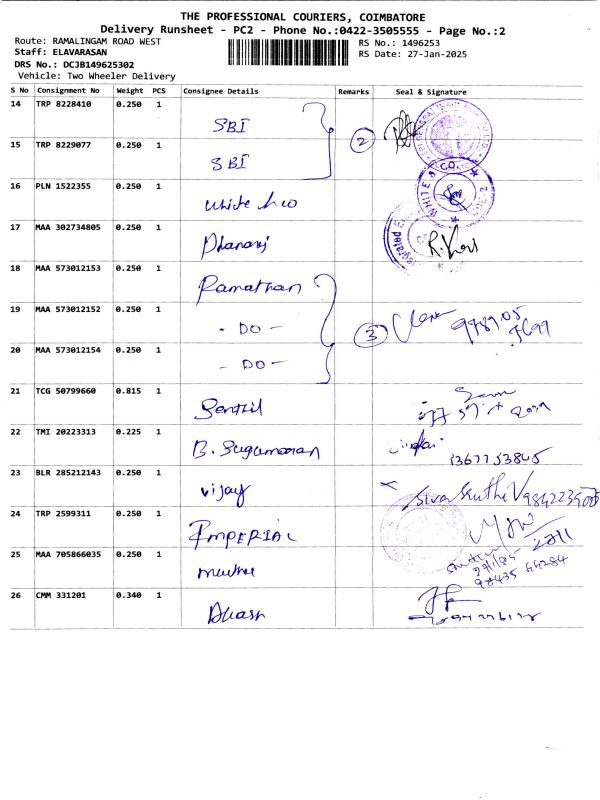 THE PROFESSIONAL COURIERS, COIMBATORE
Delivery Runsheet - PC2 - Phone No.:0422-3505555 - Page No.:2
Route: RAMALINGAM ROAD WEST
RS No.: 1496253
Staff: ELAVARASAN
RS Date: 27-Jan-2025
DRS No.: DCJB149625302
Vehicle: Two Wheeler Delivery
S No Consignment No Weight PCS Consignee Details Remarks Seal & Signature
14 TRP 8228410 0.250 1 SBI
15 TRP 8229077 0.250 1 SBI 2
16 PLN 1522355 0.250 1 White WHITE & CO.
17 MAA 302734805 0.250 1
18 MAA 573012153 0.250 1 Ramathan
19 MAA 573012152 0.250 1 - DO - 3
20 MAA 573012154 0.250 1 - DO -
21 TCG 50799660 0.815 1 Senthil
22 TMI 20223313 0.225 1 B. Sugumaran
23 BLR 285212143 0.250 1 Vijay
24 TRP 2599311 0.250 1 IMPERIAL
25 MAA 705866035 0.250 1
26 CMM 331201 0.340 1